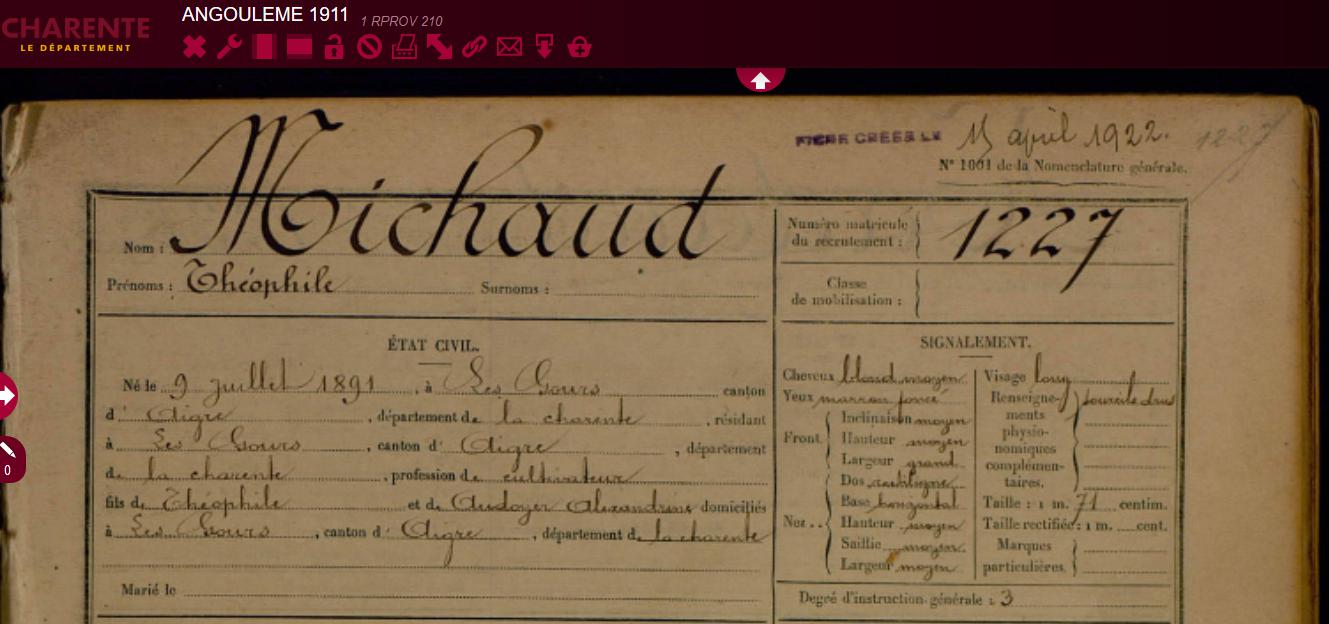 CHARENTE
LE DÉPARTEMENT
ANGOULEME 1911 1 RPROV 210
FICHE CREES LE 15 april 1922. 1227
N° 1001 de la Nomenclature générale.
Nom : Michaud
Prénoms : Théophile Surnoms :
Numéro matricule du recrutement : 1227
Classe de mobilisation :
ÉTAT CIVIL.
Né le 9 juillet 1891, à Les Gours canton
d' Aigre, département de la charente, résidant
à Les Gours, canton d' Aigre, département
de la charente, profession de cultivateur
fils de Théophile et de Audoyer Alexandrine domiciliés
à Les Gours, canton d' Aigre, département de la charente
Marié le
SIGNALEMENT.
Cheveux blond moyen
Yeux marron foncé
Front.
Inclinaison moyen
Hauteur moyen
Largeur grand
Nez..
Dos rectiligne
Base horizontal
Hauteur moyen
Saillie moyen
Largeur moyen
Visage long
Renseigne-
ments
physio-
nomiques
complémen-
taires.
sourcils drus
Taille : 1 m. 71 centim.
Taille rectifiée : 1 m. cent.
Marques
particulières.
Degré d'instruction générale : 3
0